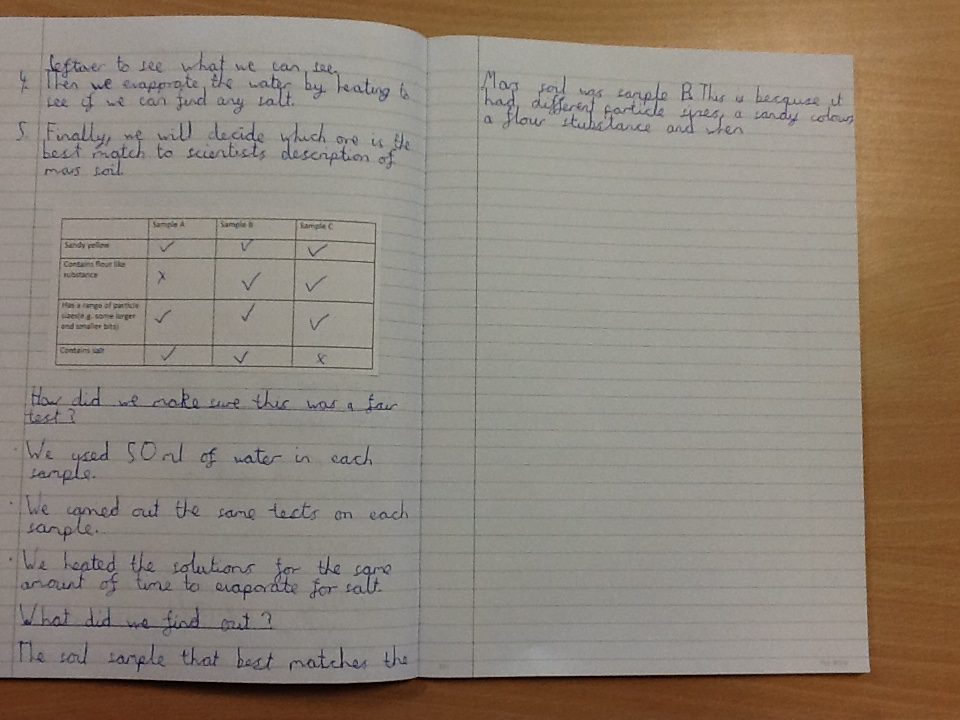 leftover to see what we can see.
4. Then we evapprate the water by heating to
see if we can find any salt.
5. Finally, we will decide which ore is the
best match to scientists description of
mars soil.
Sample A Sample B Sample C
Sandy yellow ✓ ✓ ✓
Contains flour like
substance x ✓ ✓
Has a range of particle
sizes(e.g. some larger
and smaller bits) ✓ ✓ ✓
Contains salt ✓ ✓ x
How did we make sure this was a fair
test?
· We used 50 ml of water in each
sample.
· We carried out the same tests on each
sample.
· We heated the solutions for the same
amount of time to evaporate for salt.
What did we find out?
The soil sample that best matches the
Mars soil was sample B. This is because it
had different particle sizes, a sandy colour,
a flour stubstance and when